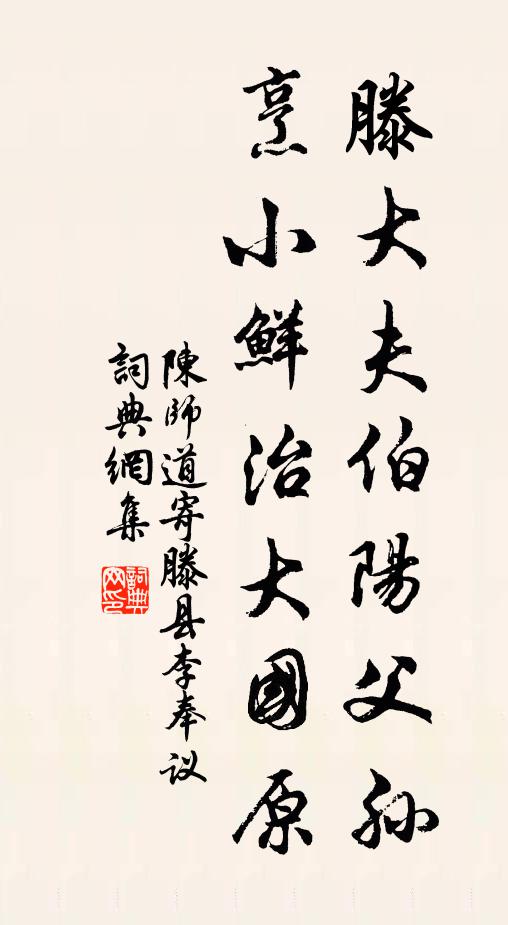 滕大夫伯陽父孫
烹小鮮治大國原
陳師道寄滕县李奉议
詞典網集
詞典網印